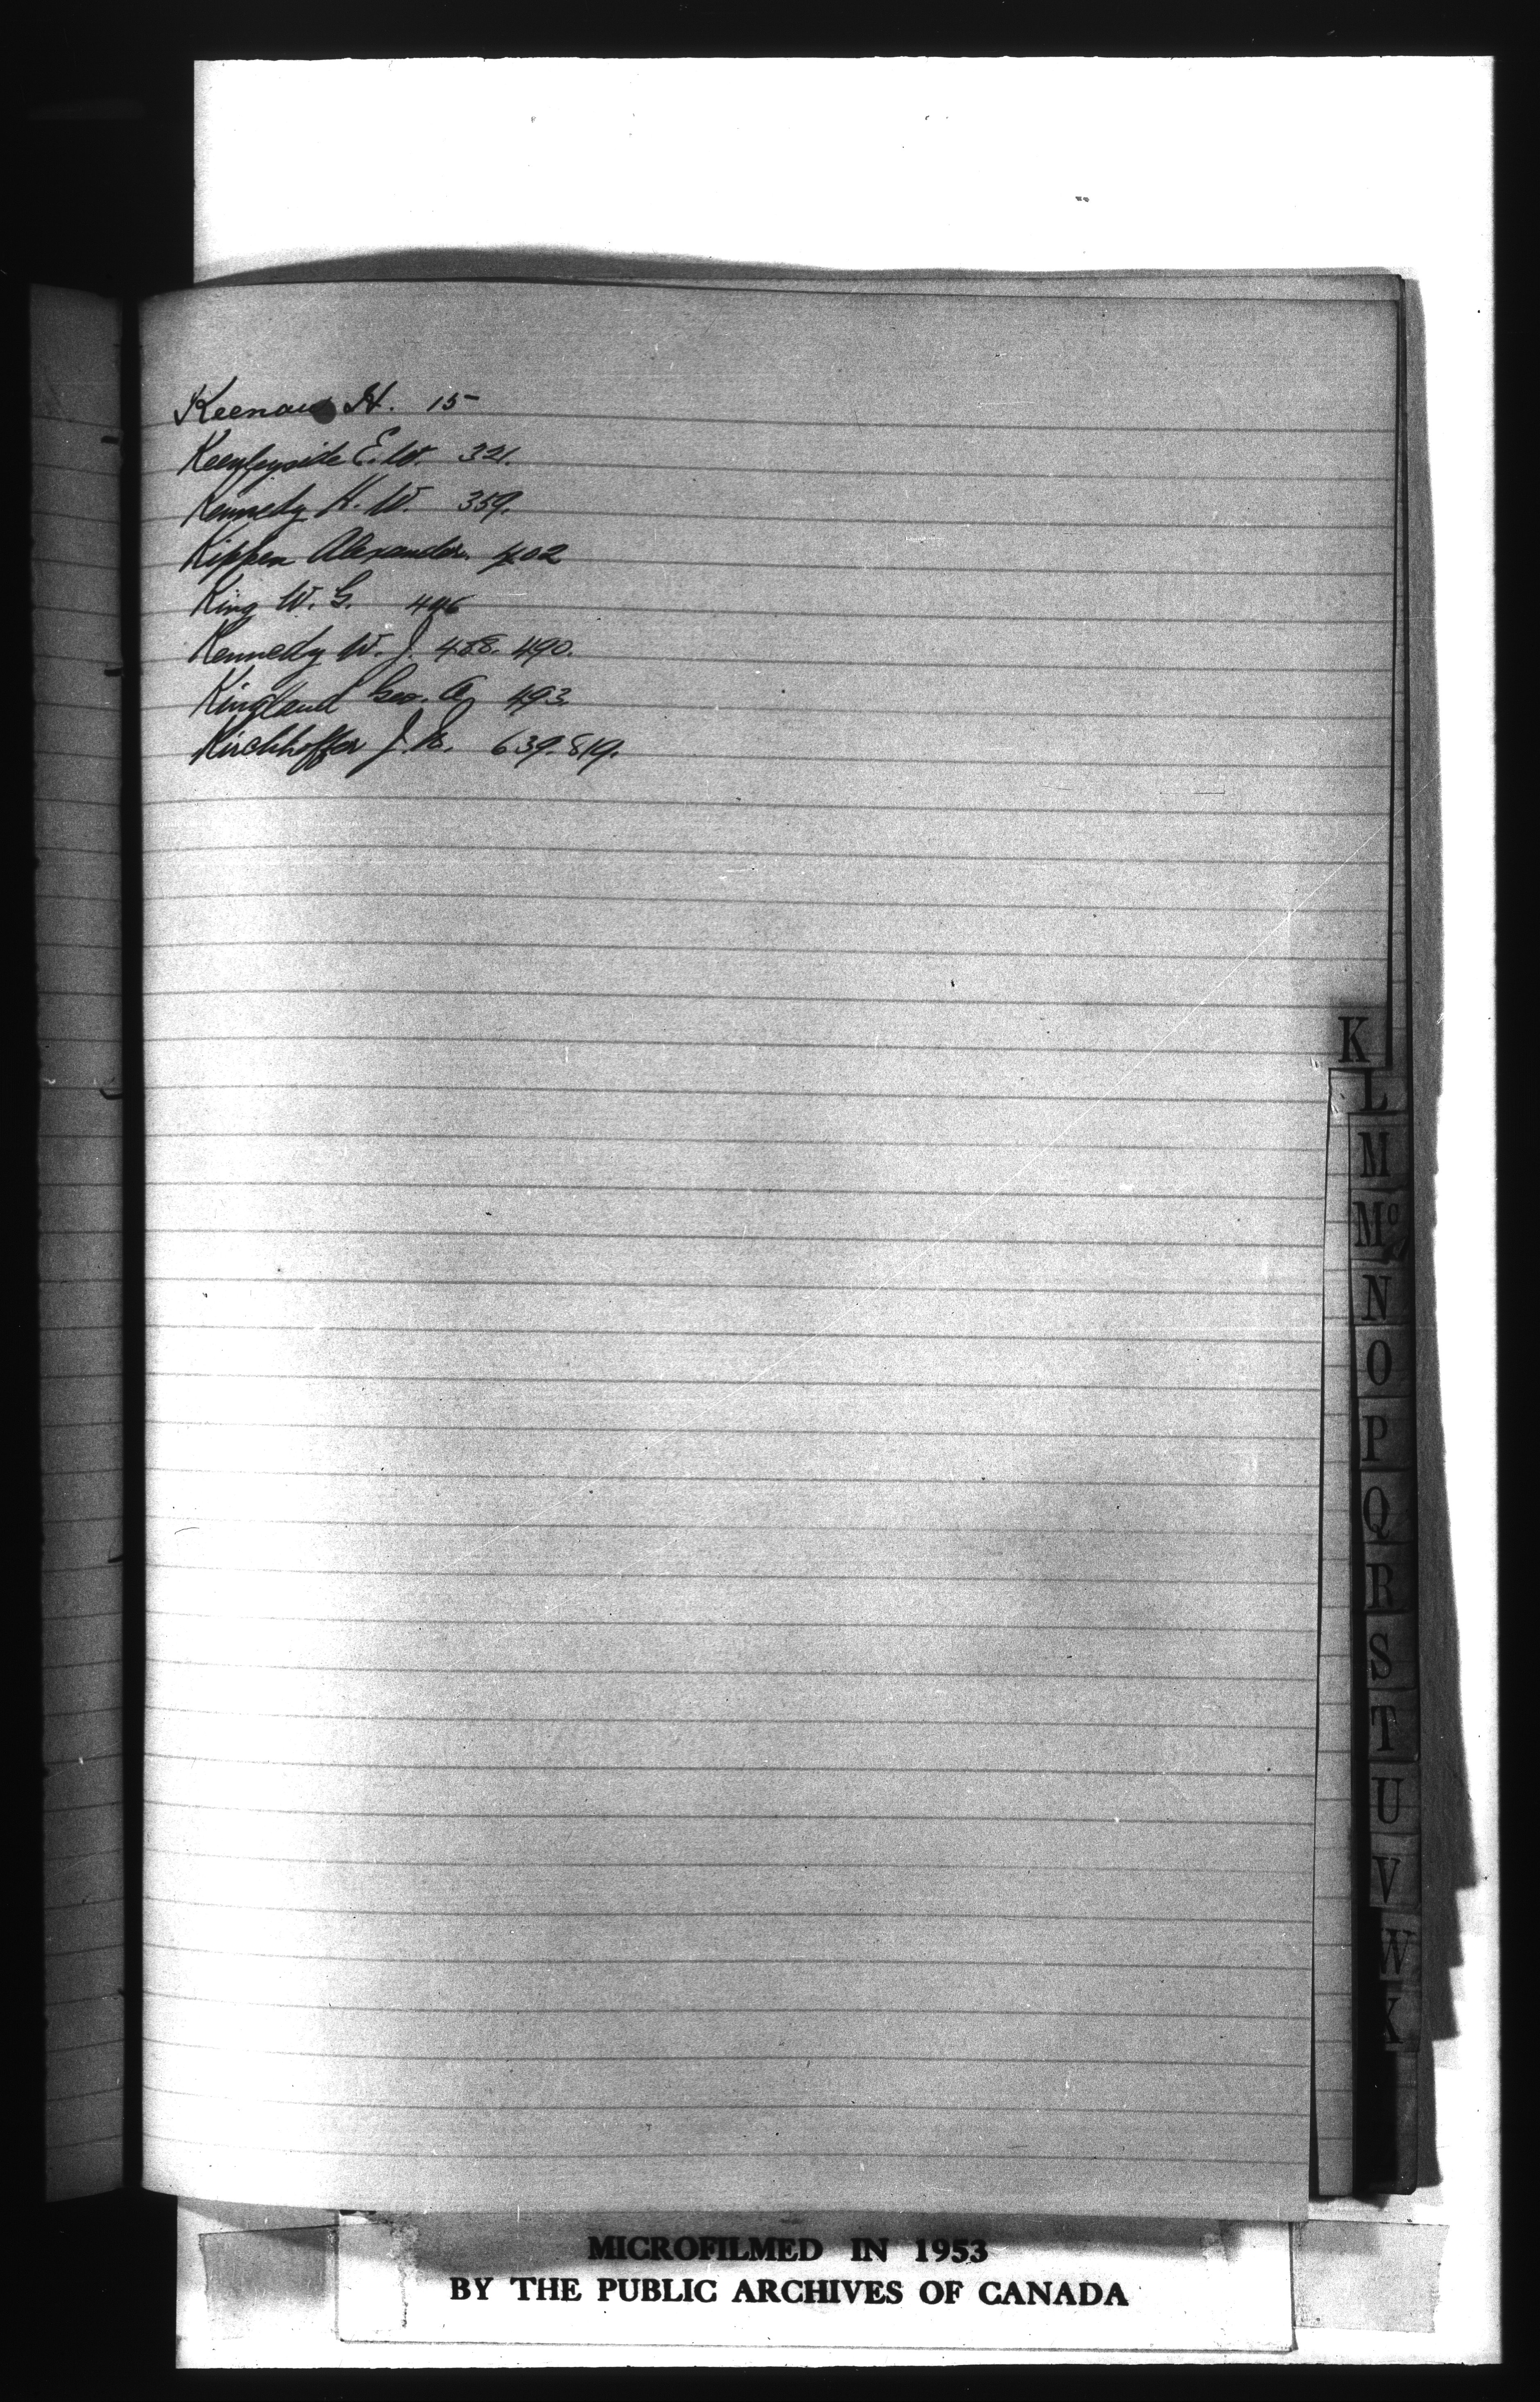 Keenan H. 15
Keenleyside E. W. 321.
Kennedy H. W. 359.
Kippen Alexander. 402
King W. G. 446
Kennedy W. J. 488. 490.
Kingland Geo. A. 493.
Kirchhoffer J. N. 639. 819.
K
L
M
Mc
N
O
P
Q
R
S
T
U
V
W
X
MICROFILMED IN 1953
BY THE PUBLIC ARCHIVES OF CANADA